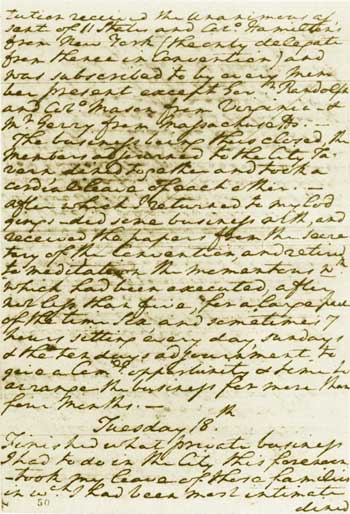 tution received the Unanimous as
sent of 11 States and Colo. Hamilton's
from New York (the only delegate
from thence in Convention) and
was subscribed to by every mem
ber present except Govr. Randolph
and Colo. Mason from Virginia &
Mr. Gerry from Massachusetts. —
The business being thus closed, the
members adjourned to the City Ta
vern, dined together and took a
cordial leave of each other. —
after which I returned to my lod
gings – did some business with, and
received the papers from the secre
tary of the Convention, and retired
to meditate on the momentous wk.
which had been executed, after
not less than five, for a large part
of the time Six, and sometimes 7
hours sitting every day, sundays
& the ten days adjournment to
give a Comee. opportunity & time to
arrange the business for more than
four Months. —
Tuesday 18th.
Finished what private business
I had to do in the City this forenoon
– took my leave of those families
in wch. I had been most intimate
dined
50